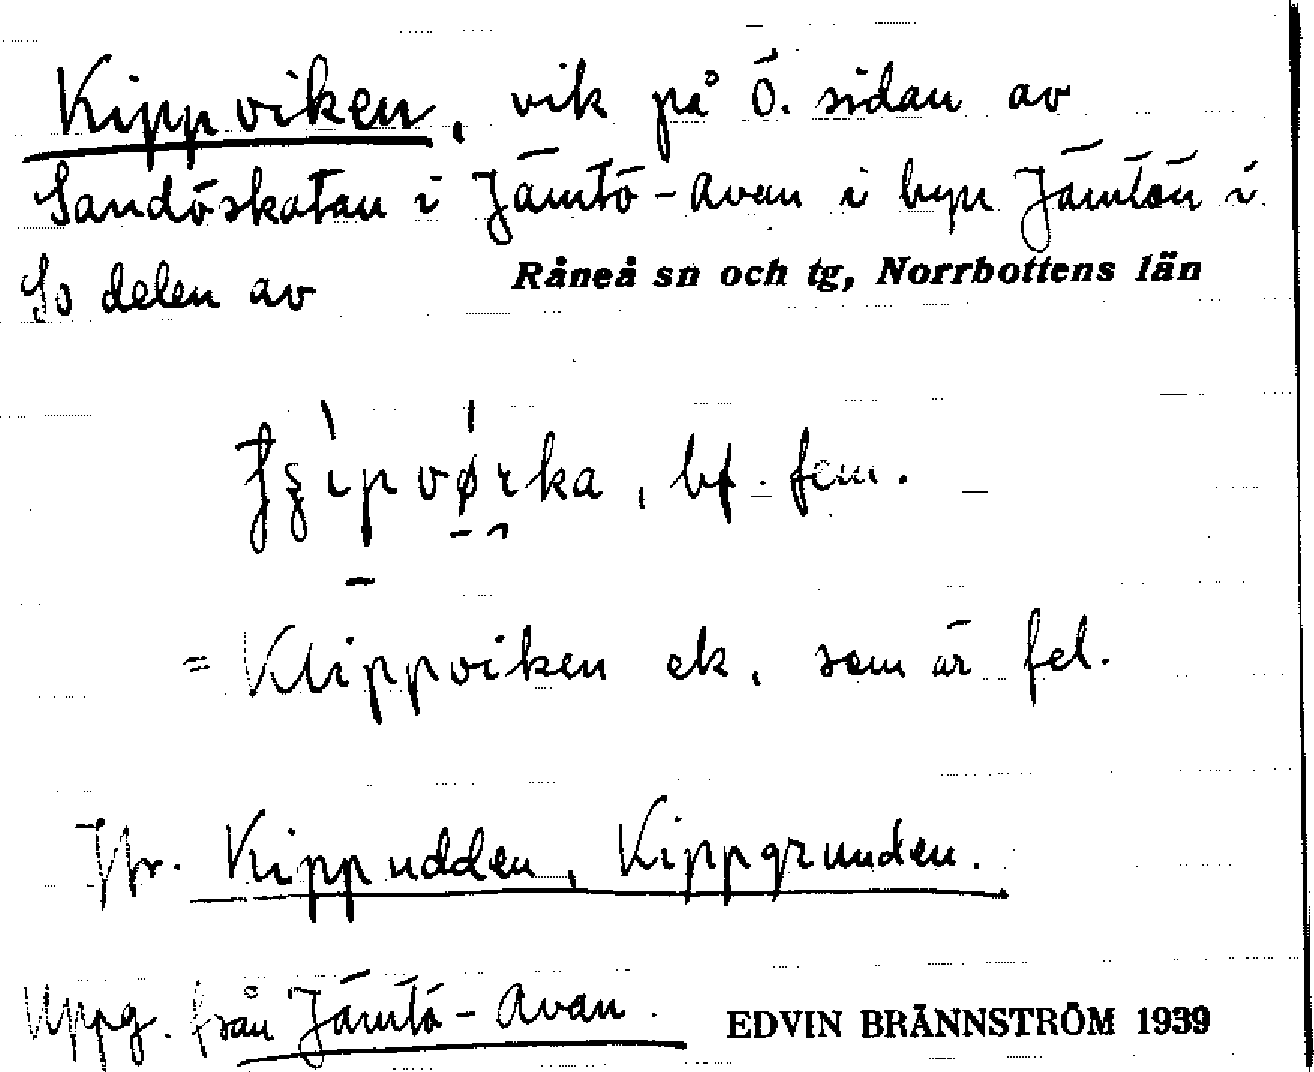 Kippviken, vik på Ö. sidan av
Sandöskatan i Jämtö-Avan i byn Jämtön i
So delen av Råneå sn och tg, Norrbottens län
bf. fem.
= Klippviken ek, som är fel.
Jfr. Kippudden, Kippgrunden.
Uppg. från Jämtö-Avan. EDVIN BRÄNNSTRÖM 1939